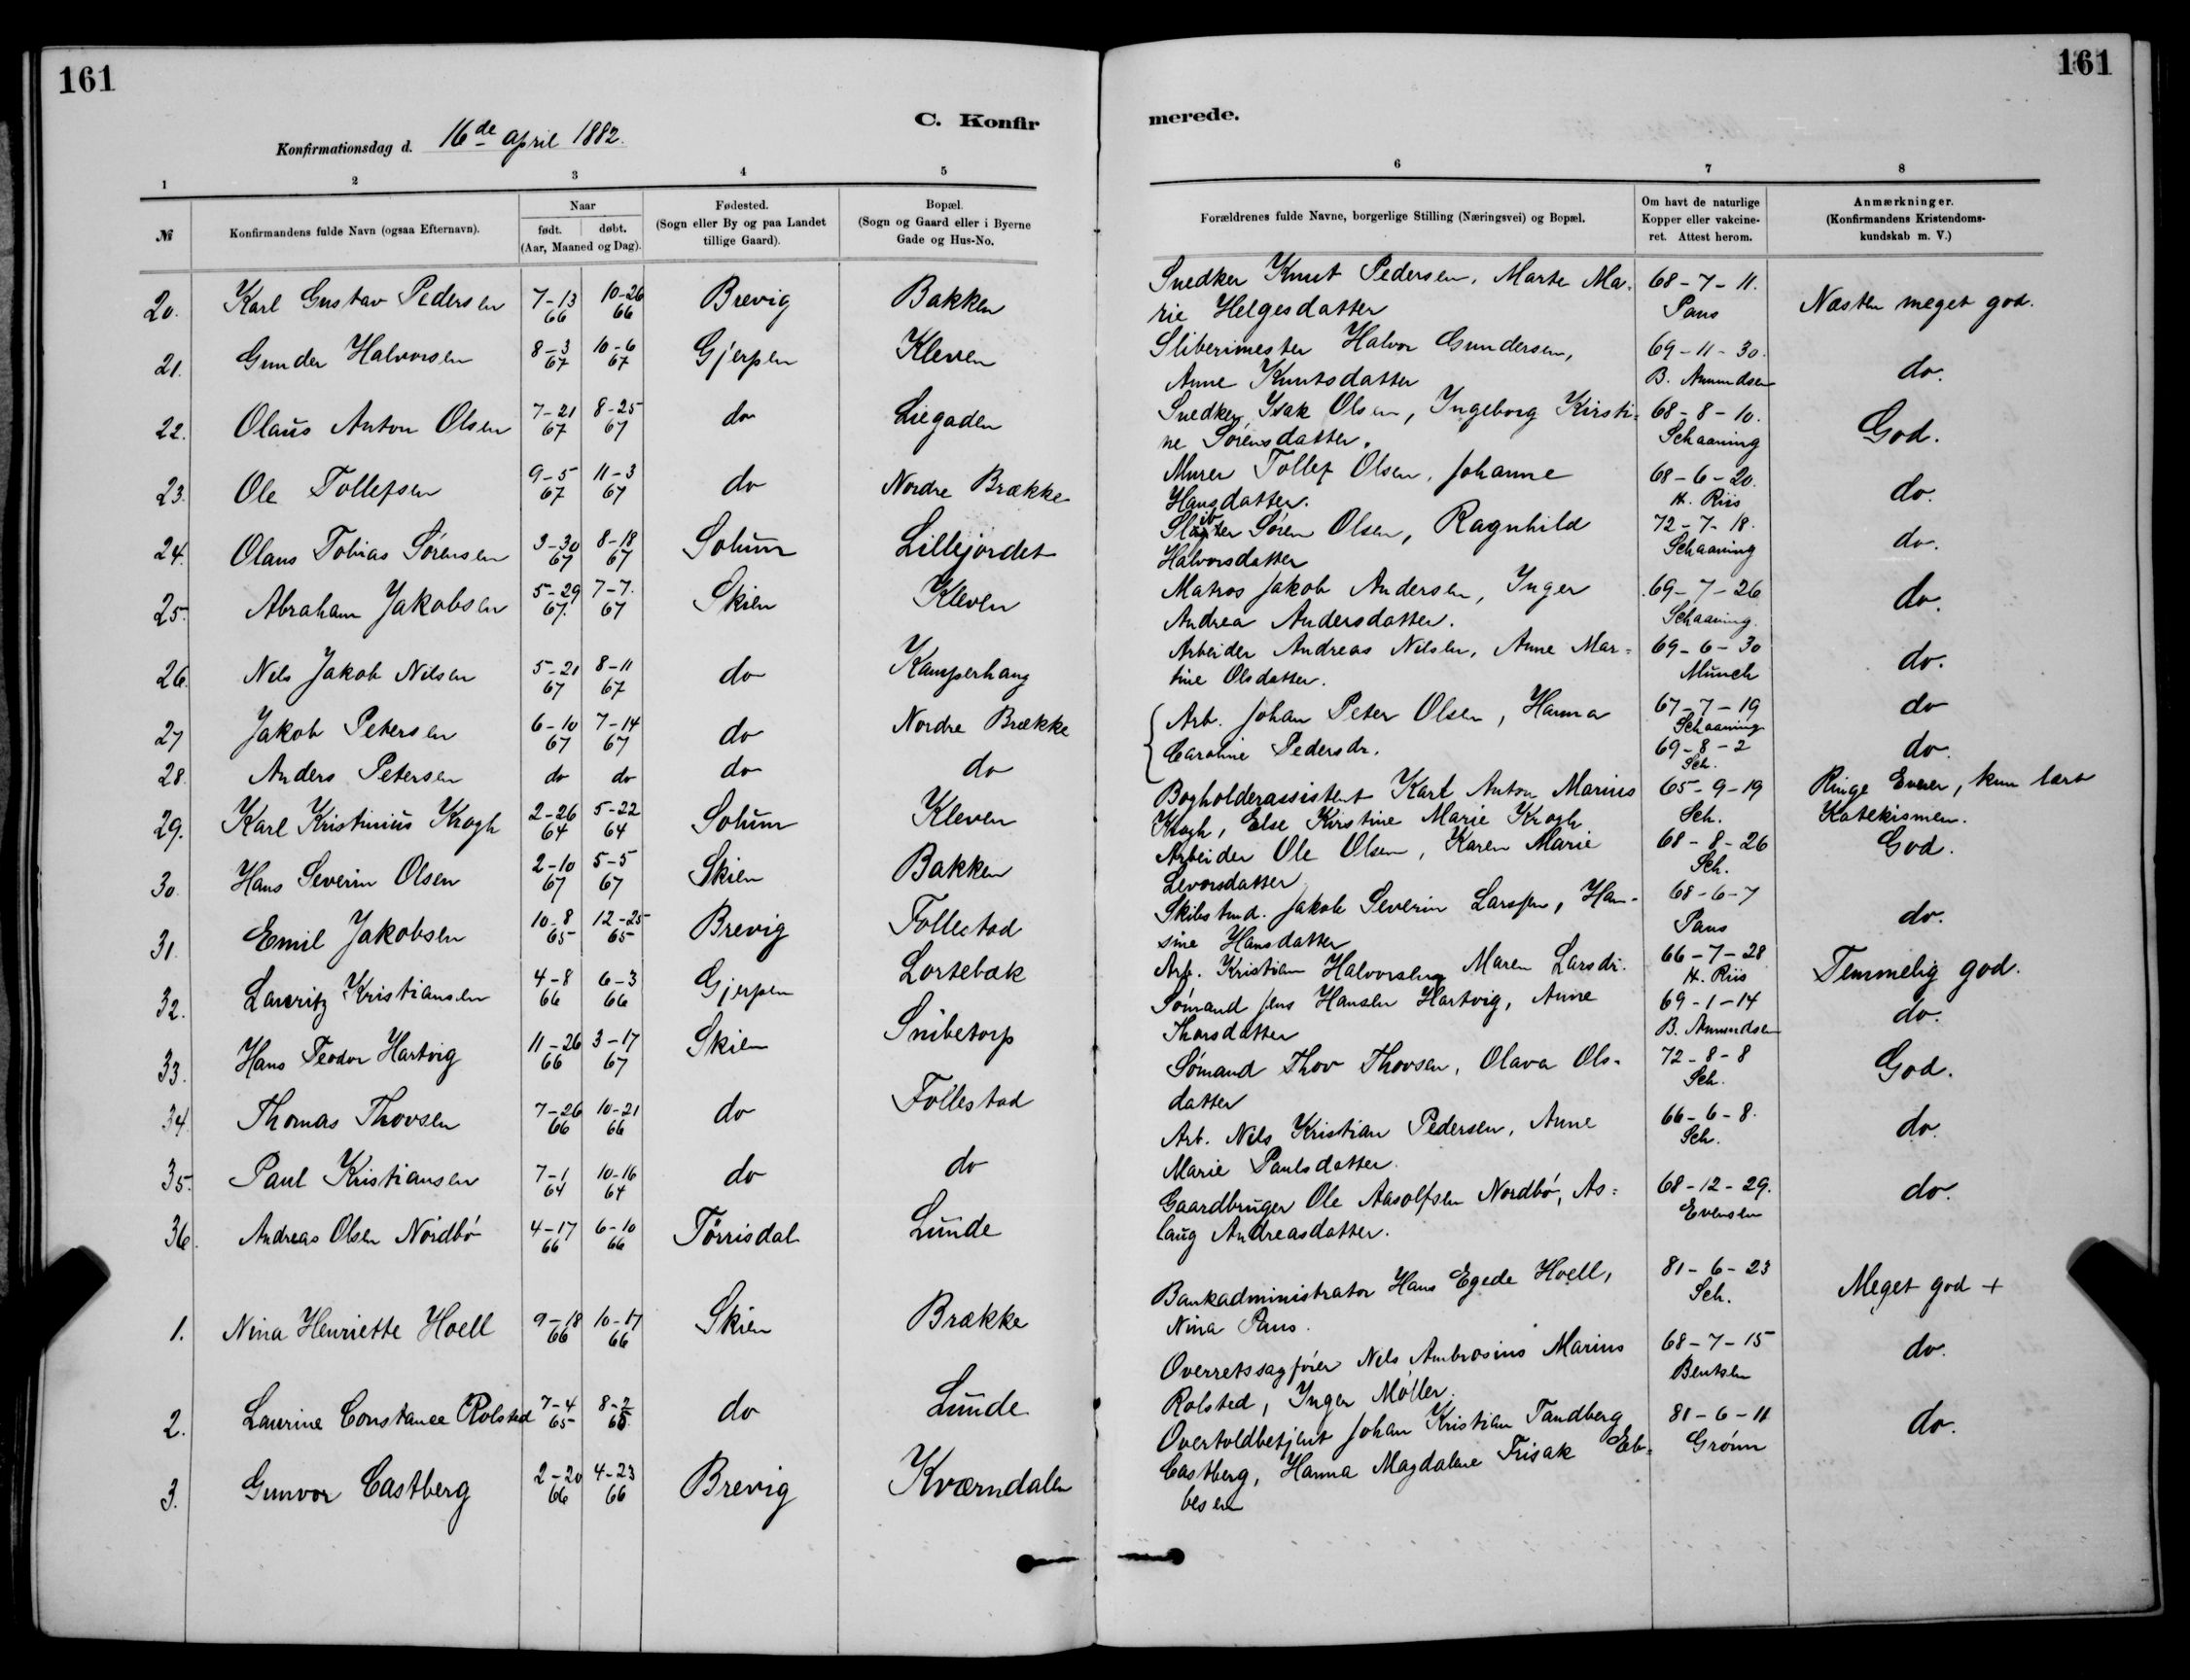 161
161
C. Konfirmerede.
Konfirmationsdag d. 16de april 1882.
1 2 3 4 5 6 7 8
№ Konfirmandens fulde Navn (ogsaa Efternavn). Naar født. døbt. (Aar, Maaned og Dag). Fødested. (Sogn eller By og paa Landet tillige Gaard). Bopæl. (Sogn og Gaard eller i Byerne Gade og Hus-No. Forældrenes fulde Navne, borgerlige Stilling (Næringsvei) og Bopæl. Om havt de naturlige Kopper eller vakcineret. Attest herom. Anmærkninger. (Konfirmandens Kristendomskundskab m. V.)
20. Karl Gustav Pedersen 7-13 66 10-26 66 Brevig Bakken Snedker Knut Pedersen, Marte Marie Helgesdatter 68-7-11. Paus Næsten meget god.
21. Gunder Halvorsen 8-3 67 10-6 67 Gjerpen Kleven Sliberimester Halvor Gundersen, Anne Knutsdatter 69-11-30. B. Amundsen do.
22. Olaus Anton Olsen 7-21 67 8-25 67 do Liegaden Snedker Isak Olsen, Ingeborg Kirstine Sørensdatter. 68-8-10. Schaaning God.
23. Ole Tollefsen 9-5 67 11-3 67 do Nordre Brække Murer Tollef Olsen, Johanne Hansdatter. 68-6-20. H. Riis do.
24. Olaus Tobias Sørensen 3-30 67 8-18 67 Solum Lillejordet Søren Olsen, Ragnhild Halvorsdatter 72-7-18. Schaaning do.
25. Abraham Jakobsen 5-29 67. 7-7. 67 Skien Kleven Matros Jakob Andersen, Inger Andrea Andersdatter. 69-7-26 Schaaning. do.
26. Nils Jakob Nilsen 5-21 67 8-11 67 do Kamperhaug Arbeider Andreas Nilsen, Anne Martine Olsdatter. 69-6-30 Münch do.
27 Jakob Petersen 6-10 67 7-14 67 do Nordre Brække Arb. Johan Peter Olsen, Hanna Caroline Pedersdr. 67-7-19 Schaaning do
28. Anders Petersen do do do do 69-8-2 Sch. do.
29. Karl Kristinius Krogh 2-26 64 5-22 64 Solum Kleven Bogholderassistent Karl Anton Marius Krogh, Else Kirstine Marie Krogh 65-9-19 Sch. Ringe Evner, kun lært Katekismen.
30. Hans Severin Olsen 2-10 67 5-5 67 Skien Bakken Arbeider Ole Olsen, Karen Marie Levorsdatter 68-8-26 Sch. God.
31. Emil Jakobsen 10-8 65 12-25 65 Brevig Follestad Skibstmd. Jakob Severin Larssen, Hansine Hansdatter 68-6-7 Paus do.
32. Lauritz Kristiansen 4-8 66 6-3 66 Gjerpen Lortebæk Arb. Kristian Halvorsen, Maren Larsdr. 66-7-28 H. Riis Temmelig god.
33. Hans Teodor Hartvig 11-26 66 3-17 67 Skien Snibetorp Sømand Jens Hansen Hartvig, Anne Thorsdatter 69-1-14 B. Amundsen do.
34. Thomas Thovsen 7-26 66 10-21 66 do Follestad Sømand Thov Thovsen, Olava Olsdatter 72-8-8 Sch. God.
35. Paul Kristiansen 7-1 64 10-16 64 do do Arb. Nils Kristian Pedersen, Anne Marie Paulsdatter. 66-6-8. Sch. do.
36. Andreas Olsen Nordbø 4-17 66 6-10 66 Tørrisdal Lunde Gaardbruger Ole Aasolfsen Nordbø, Aslaug Andreasdatter. 68-12-29. Evensen do.
1. Nina Henriette Hoell 9-18 66 10-17 66 Skien Brække Bankadministrator Hans Egede Hoell, Nina Paus. 81-6-23 Sch. Meget god +
2. Laurine Constance Rolsted 7-4 65 8-2 65 do Lunde Overretssagfører Nils Ambrosius Marius Rolsted, Inger Møller. 68-7-15 Bentsen do.
3. Gunvor Castberg 2-20 66 4-23 66 Brevig Kværndalen Overtoldbetjent Johan Kristian Tandberg Castberg, Hanna Magdalene Frisak Ebbesen 81-6-11 Grönn do.